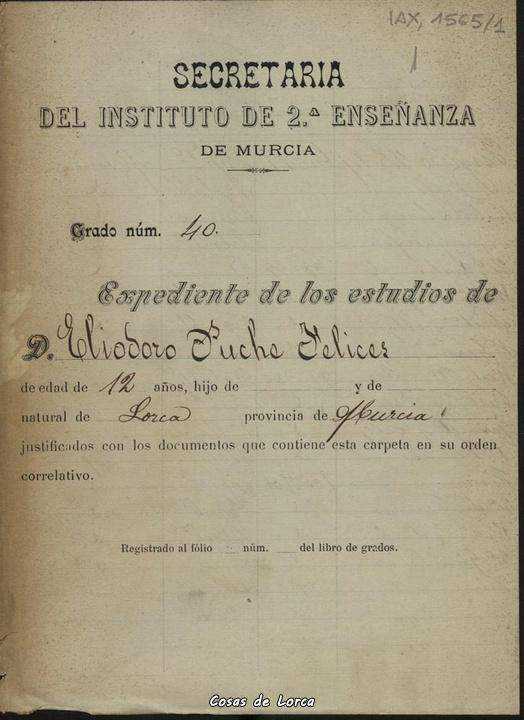 IAX, 1565/1
SECRETARIA
DEL INSTITUTO DE 2.ª ENSEÑANZA
DE MURCIA
Grado núm. 40.
Expediente de los estudios de
D. Eliodoro Puche Felices
de edad de 12 años, hijo de y de
natural de Lorca provincia de Murcia
justificados con los documentos que contiene esta carpeta en su orden
correlativo.
Registrado al fólio núm. del libro de grados.
Cosas de Lorca